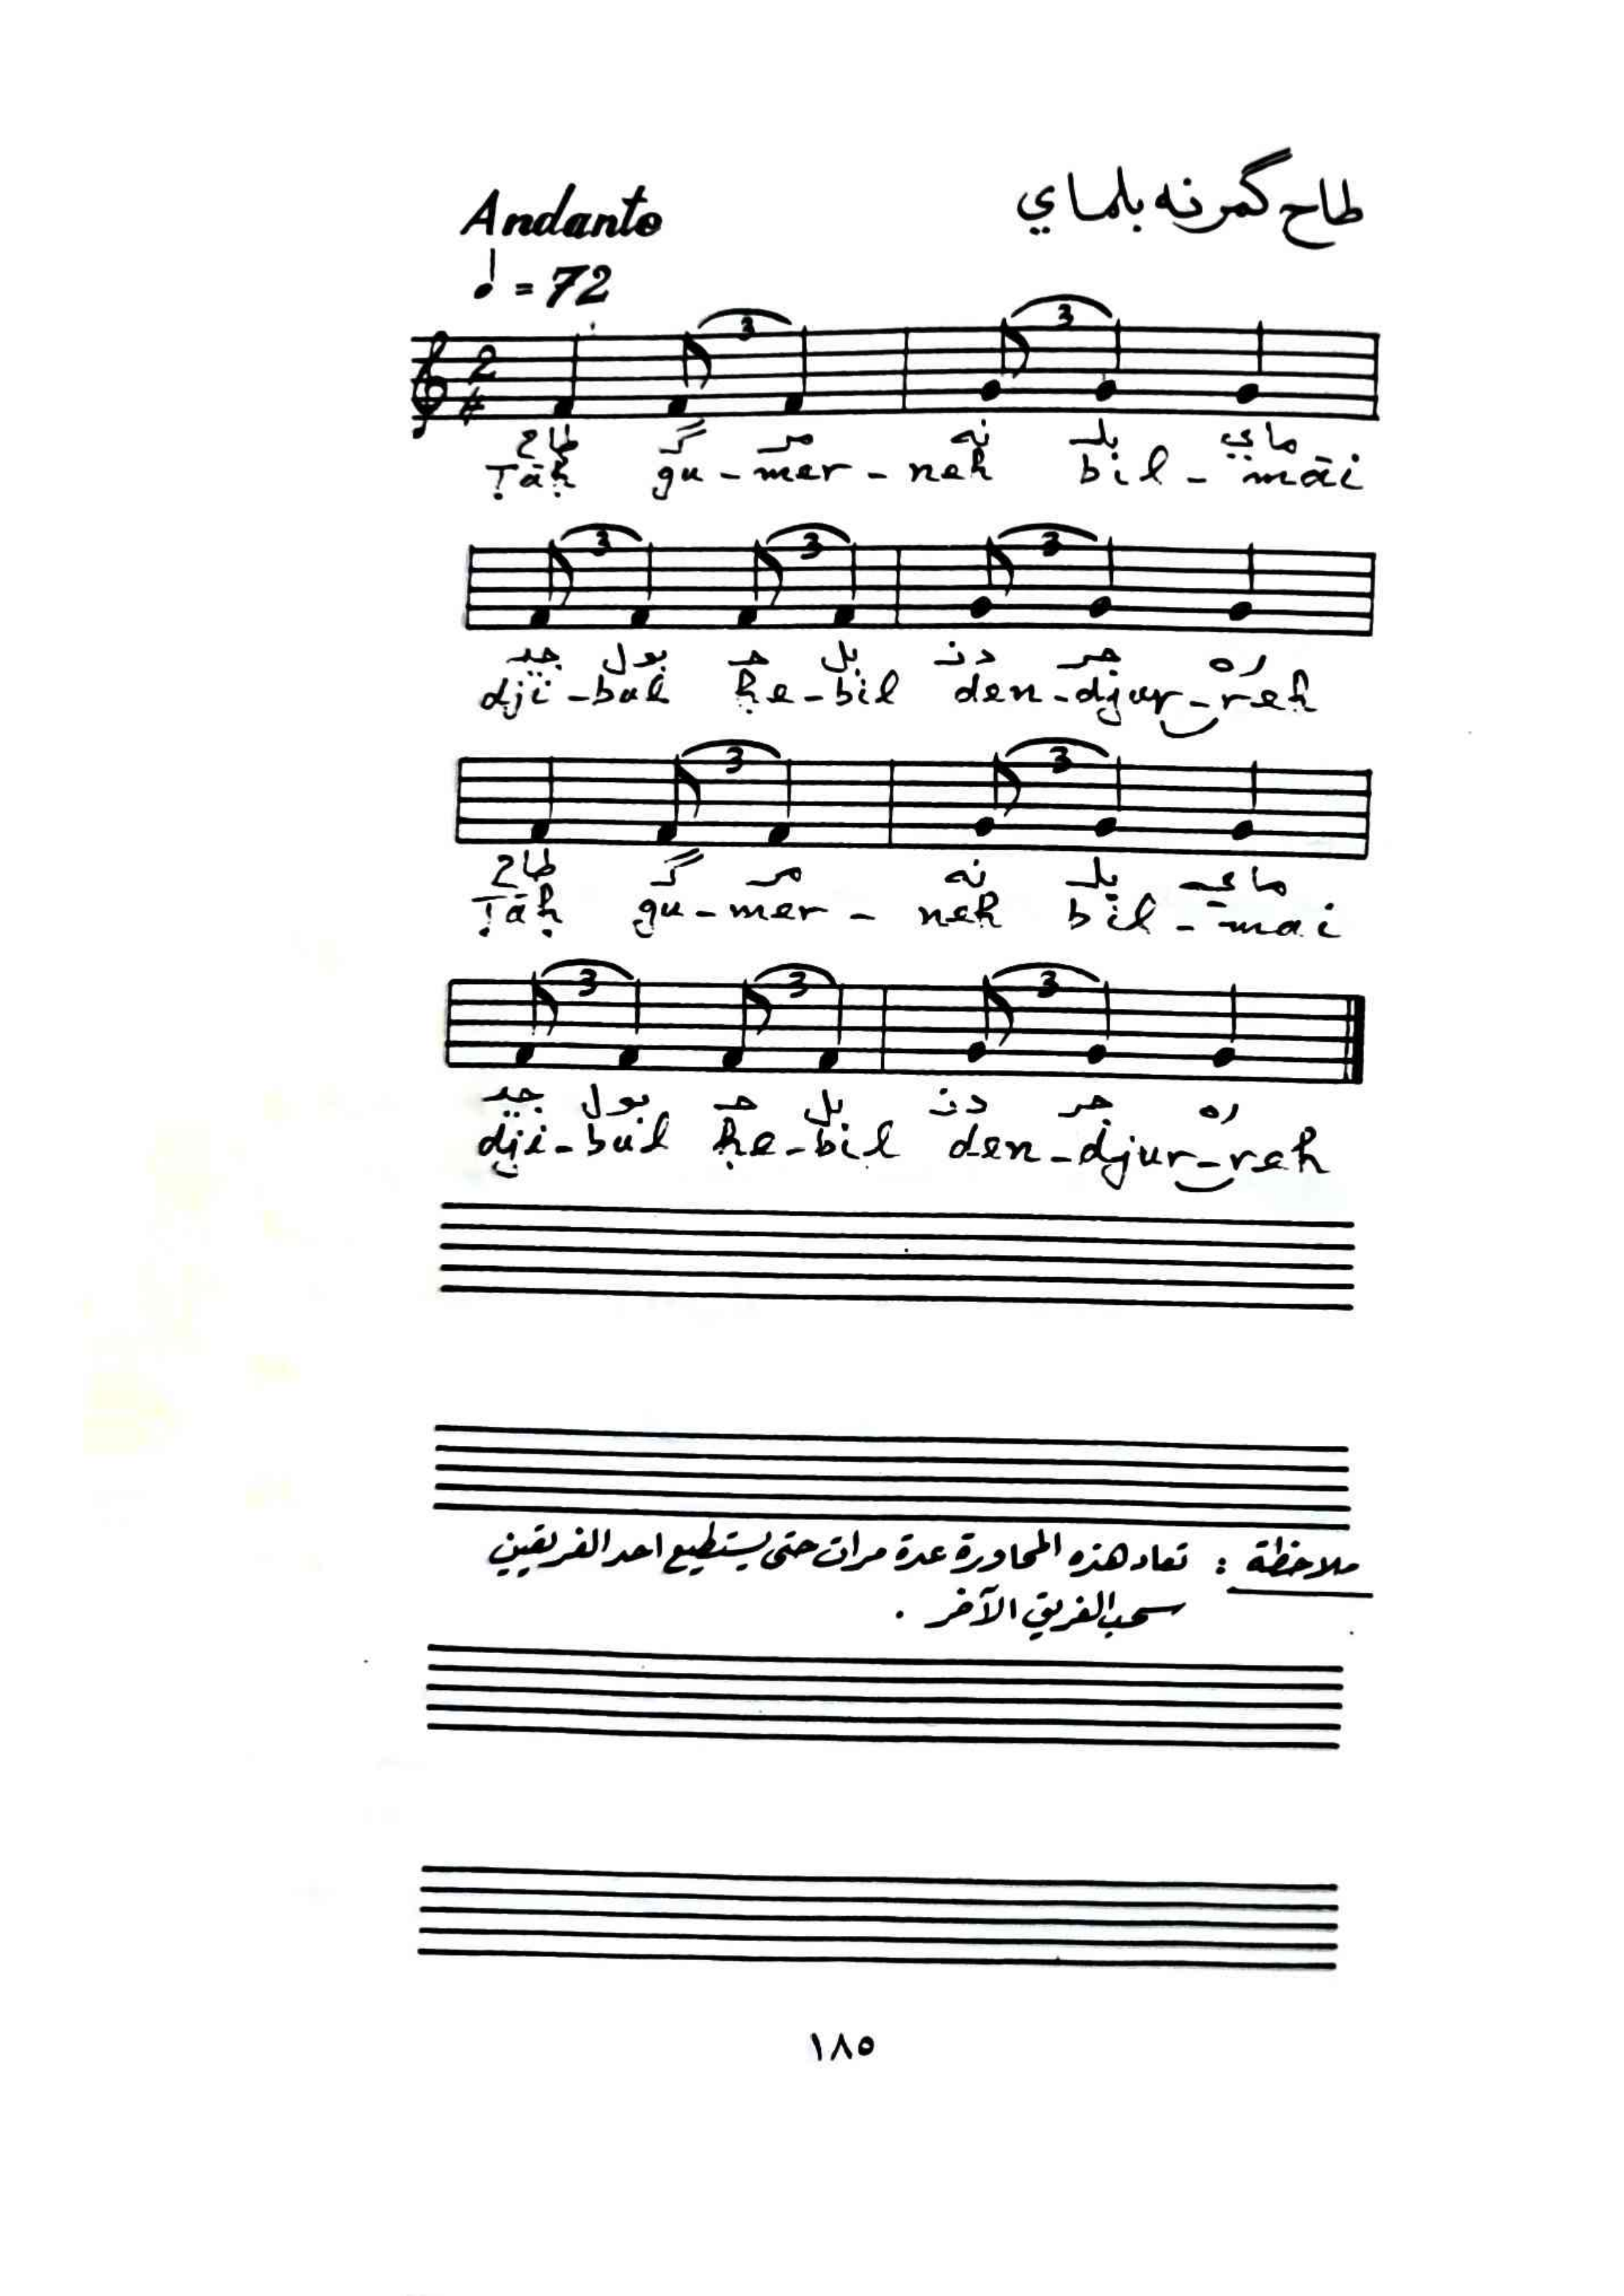 طاح گمرنه بلماي
Andanto
♩ = 72
2
4
3 3
طاح گـ مر نه بلـ ماي
Ṭāḥ gu - mer - neh bil - māi
3 3 3
جيـ بول حـ بل دنـ جر ره
dji - bul ḥe - bil den - djur - reh
3 3
طاح گـ مر نه بلـ ماي
Ṭāḥ gu - mer - neh bil - mai
3 3 3
جيـ بول حـ بل دنـ جر ره
dji - bul ḥe - bil den - djur - reh
ملاحظة : تعاد هذه المحاورة عدة مرات حتى يستطيع احد الفريقين
سحب الفريق الآخر .
١٨٥